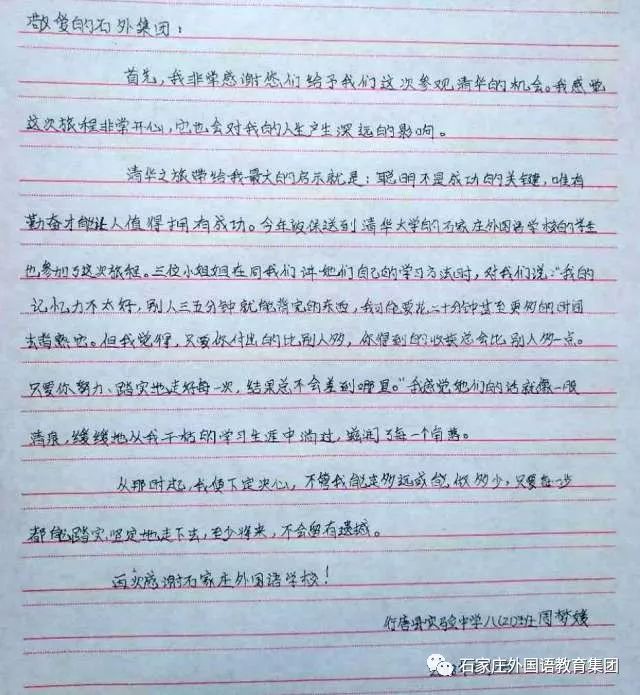 敬爱的石外集团：
首先，我非常感谢您们给予我们这次参观清华的机会。我感觉
这次旅程非常开心，它也会对我的人生产生深远的影响。
清华之旅带给我最大的启示就是：聪明不是成功的关键，唯有
勤奋才能让人值得拥有成功。今年被保送到清华大学的石家庄外国语学校的学生
也参加了这次旅程。三位小姐姐在同我们讲她们自己的学习方法时，对我们说："我的
记忆力不太好，别人三五分钟就能背完的东西，我可能要花二十分钟甚至更多的时间
去背熟它。但我觉得，只要你付出的比别人多，你得到的收获总会比别人多一点。
只要你努力、踏实地走好每一次，结果总不会差到哪里。"我感觉她们的话就像一股
清泉，缓缓地从我干枯的学习生涯中淌过，滋润了每一个角落。
从那时起，我便下定决心，不管我能走多远或能做多少，只要每一步
都能踏实、坚定地走下去，至少将来，不会留有遗憾。
再次感谢石家庄外国语学校！
行唐县实验中学八(21)班周梦媛
石家庄外国语教育集团